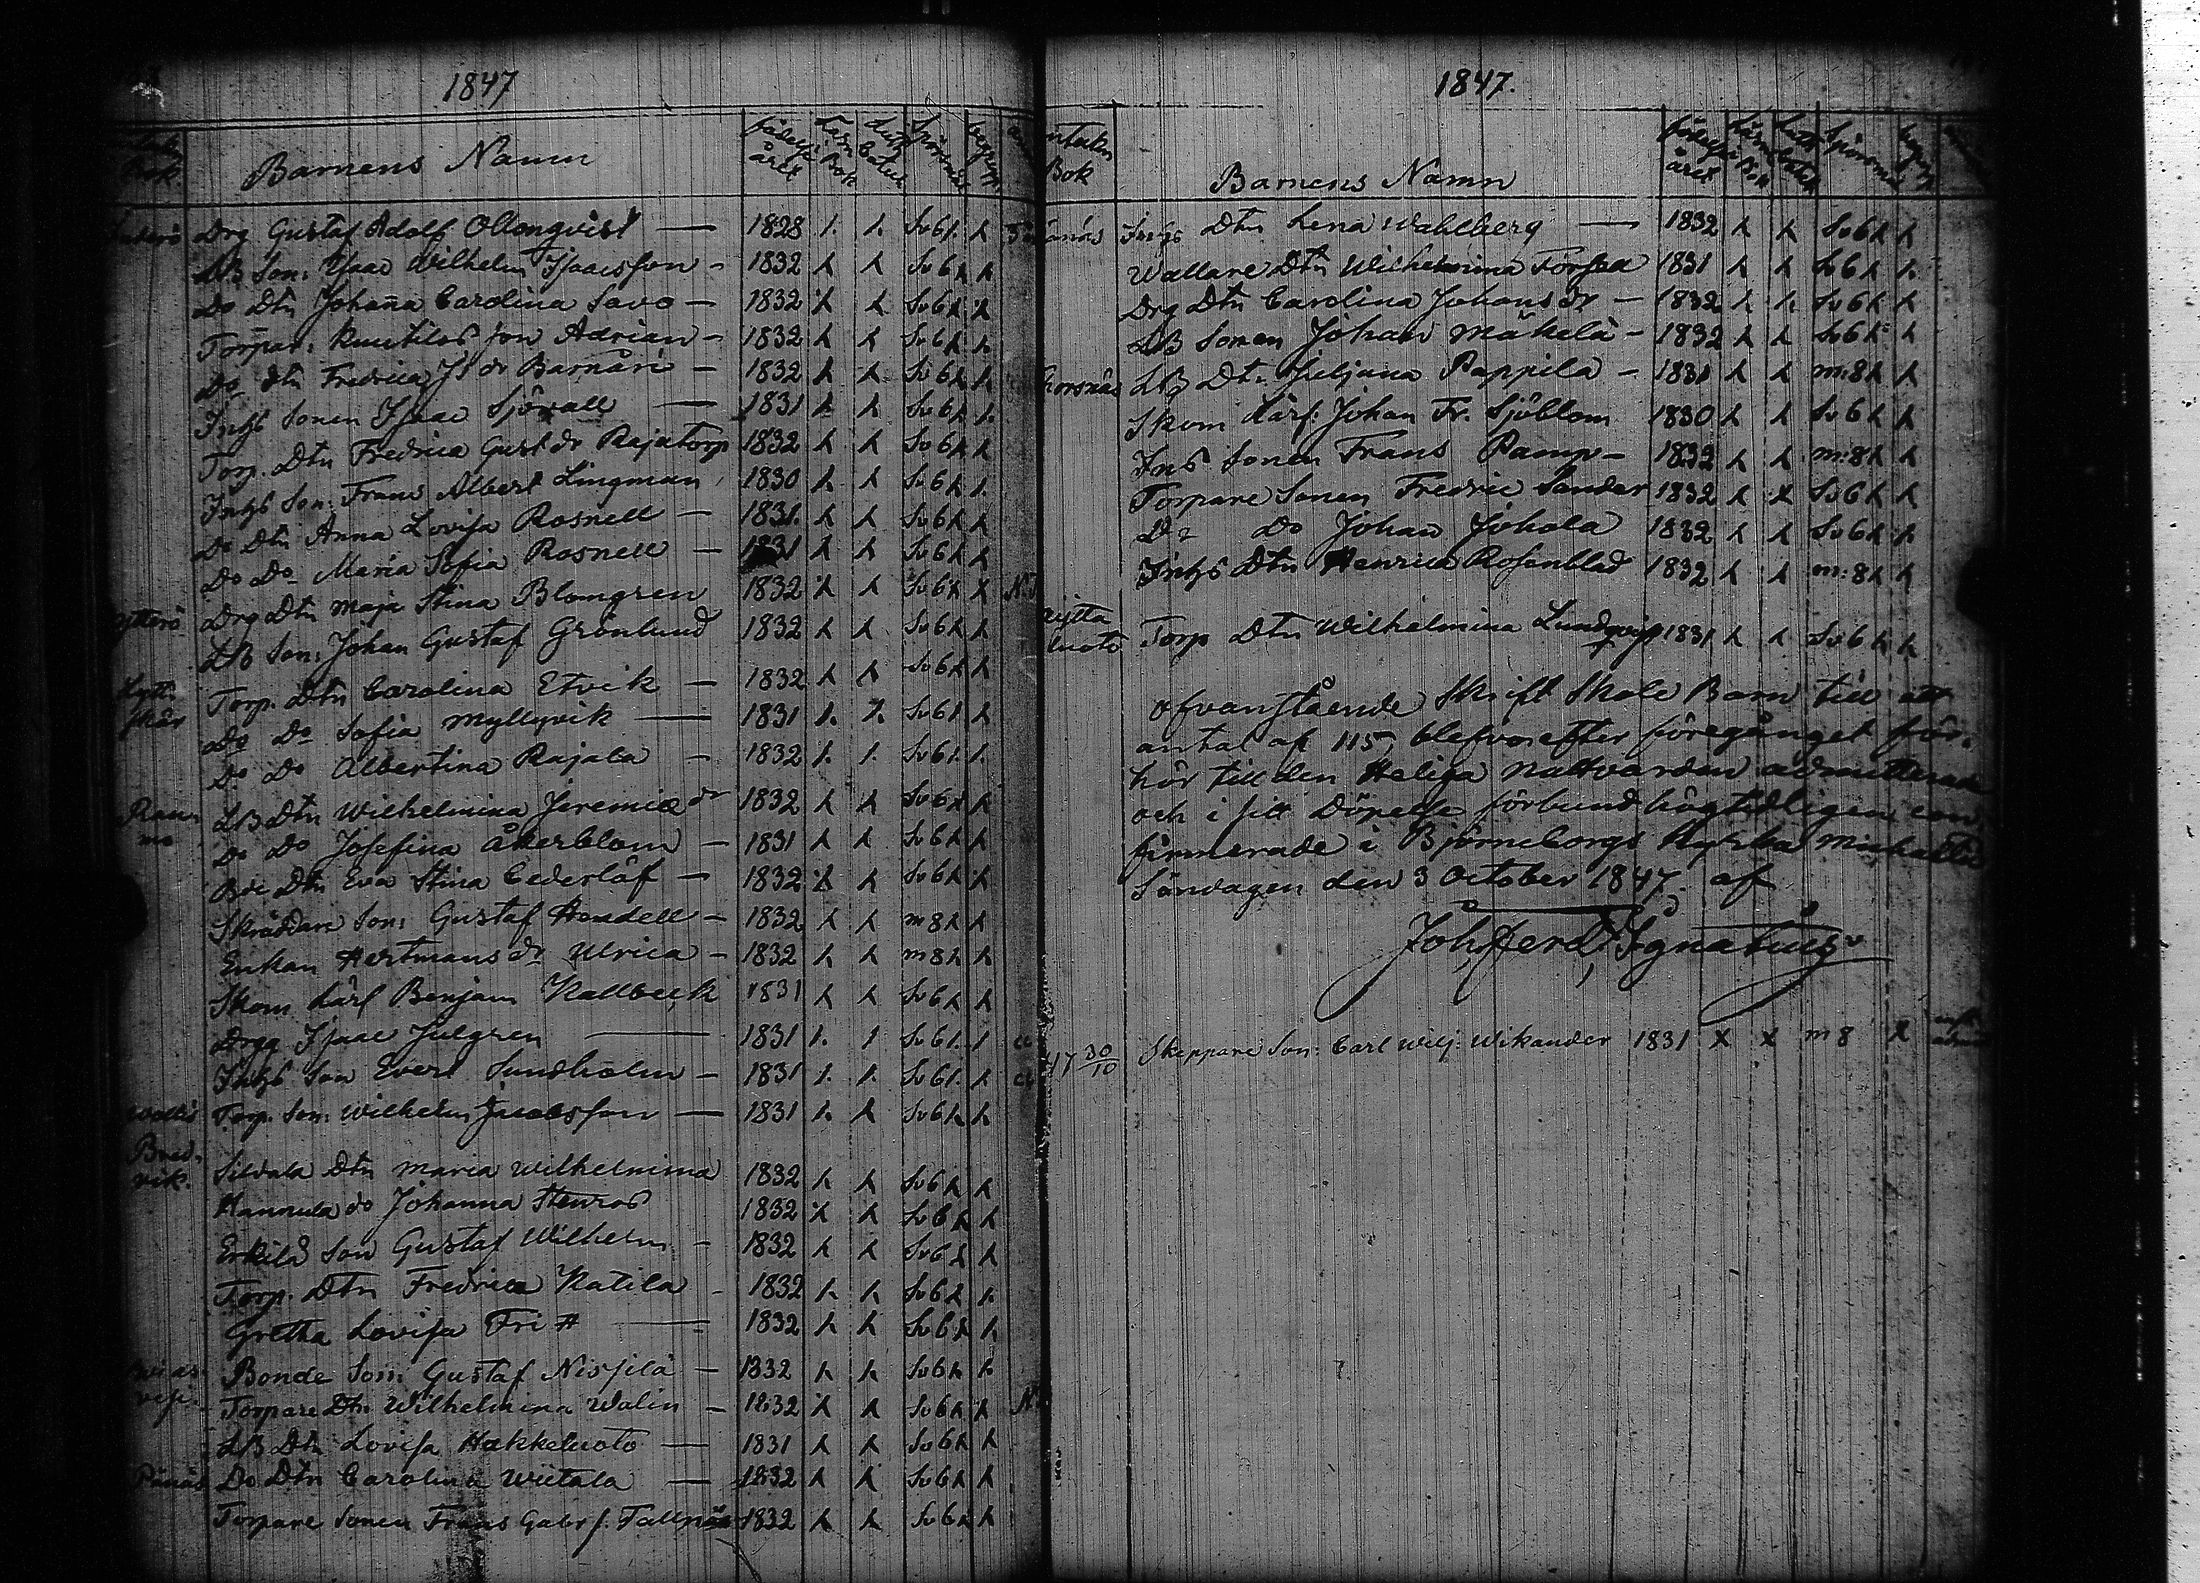 1847
Barnens Namn
födelse året
Drg Gustaf Adolf Ollonqvist — 1828 Sv 6
LB Son: Isaac Wilhelm Isaacsson - 1832 Sv 6
Do Dtr Johan̄a Carolina Savo — 1832 Sv 6
Torpar: Knutilas son Adrian - 1832 Sv 6
Do dtr Fredrica Is dr Barnäri - 1832 Sv 6
Inhs Sonen Isaac Sjövall — 1831 Sv 6
Torp. Dtr Fredrica Gust dr Rajatorp 1832 Sv 6
Inhs Son: Frans Albert Lingman 1830 Sv 6
Do Dtr Anna Lovisa Rosnell — 1831. Sv 6
Do Do Maria Sofia Rosnell — 1831 Sv 6
Drg Dtr Maja Stina Blomgren 1832 Sv 6
Ytterö LB Son: Johan Gustaf Grönlund 1832 Sv 6
Torp. Dtr Carolina Etvik — 1832 Sv 6
Do Do Sofia Myllyvik — 1831 Sv 6
Do Do Albertina Rajala - 1832 Sv 6
LB Dtr Wilhelmina Jeremiæ dr 1832 Sv 6
Do Do Josefina Åkerblom — 1831 Sv 6
Dtr Eva Stina Cederlöf — 1832 Sv 6
Skräddare Son: Gustaf Handell — 1832 m 8
Enkan Hertmans dr Ulrica — 1832 m 8
Skom. Lärl Benjam Kallbeck 1831 Sv 6
Drg Isaac Julgren — 1831 Sv 6
Inhs Son Evert Sundholm — 1831 Sv 6
Torp. Son: Wilhelm Jacobsson — 1831 Sv 6
Bred-
vik. Silvala Dtr Maria Wilhelmina 1832 Sv 6
Hannula do Johanna Stenros 1832 Sv 6
Erkilä Son Gustaf Wilhelm - 1832 Sv 6
Torp. Dtr Fredrica Katila - 1832 Sv 6
Gretha Lovisa Frit — 1832 Sv 6
Bonde Son: Gustaf Nissilä — 1832 Sv 6
Torpare Dtr Wilhelmina Walin — 1832 Sv 6
LB Dtr Lovisa Hakkeluoto — 1831 Sv 6
Do Dtr Carolina Wiitala — 1832 Sv 6
Torpare Sonen Frans Gabr s. Tallnäs 1832 Sv 6
1847.
Bok Barnens Namn
födelse året
Inhs Dtr Lena Wahlberg — 1832 Sv 6
Wallare Dtr Wilhelmina Forssa 1831 Sv 6
Drg Dtr Carolina Johans dr — 1832 Sv 6
LB Sonen Johan Mäkelä - 1832 Sv 6
LB Dtr Juljana Pappila - 1831 m: 8
Skom Lärl. Johan Fr. Sjöblom 1830 Sv 6
Inhs Sonen Frans Pamp — 1832 m: 8
Torpare Sonen Fredric Sandar 1832 Sv 6
Do Do Johan Johala 1832 Sv 6
Inhs Dtr Henrica Rosenblad 1832 m: 8
luoto Torp Dtr Wilhelmina Lundqvist 1831 Sv: 6
Ofvanstående Skrift Skole Barn till ett
antal af 115, blefvo efter föregånget för-
hör till den Heliga Nattvarden admitterade
och i sitt Döpelse förbund högtidligen con-
firmerade i Björneborgs Kyrka Michaelis
Söndagen den 3 October 1847 af
Joh: Ferd: Ignatius
47 30/10 Skeppare Son: Carl Wilj: Wikander 1831 x x m 8